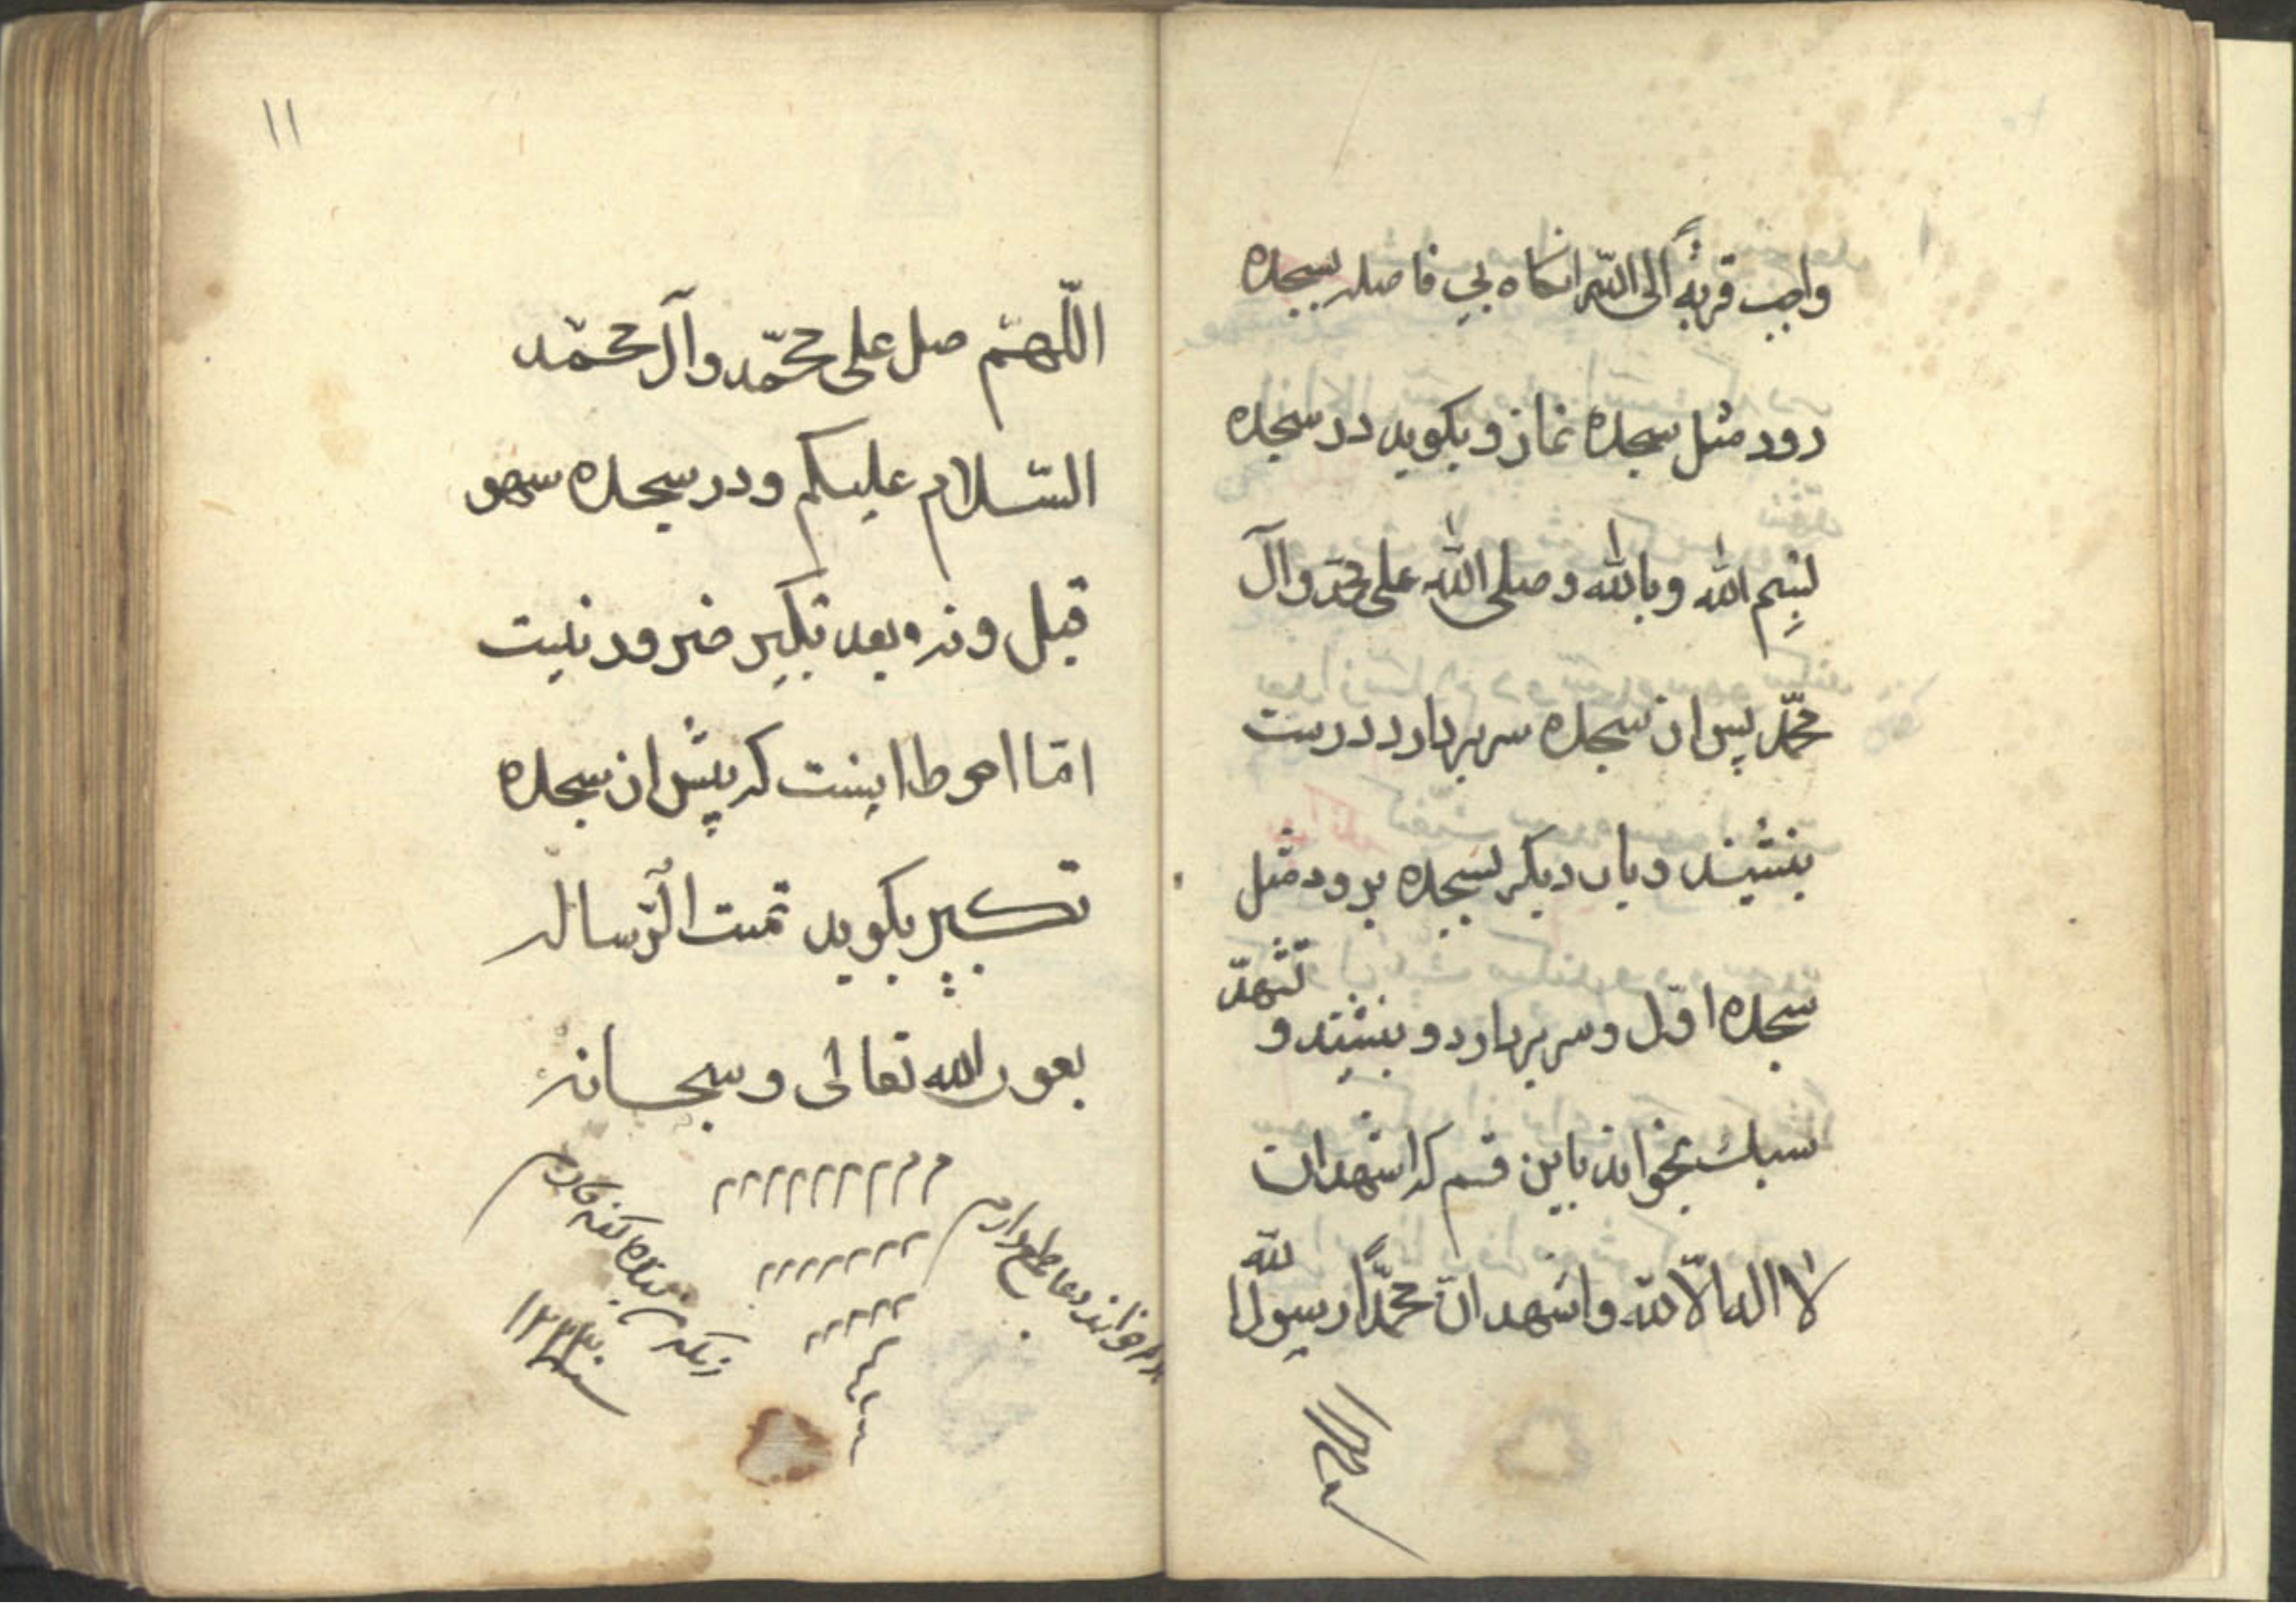 واجب قربةً الی الله انکاه بی فاصله بسجده
رود مثل سجده نماز و بکوید در سجده
بسم الله وبالله وصلی الله علی محمّد وآل
محمّد پس از سجده سر بردارد درست
بنشیند و بار دیکر بسجده برود مثل
سجده اوّل و سر بردارد و بنشیند و تشهّد
سبک بخواند باین قسم که اشهد ان
لا اله الّا الله واشهد انّ محمّدًا رسول الله
اللّهم
١١
اللّهمّ صل علی محمّد وآل محمّد
السّلام علیکم و در سجده سهو
قبل و نه بعد تکبیر ضرور نیست
امّا احوط اینست که پیش از سجده
تکبیر بکوید تمت الرّساله
بعون الله تعالی و سبحانه
هر که خواند دعا طمع دارم
زانکه من بنده کنه کارم
سنه ١٢٢٣